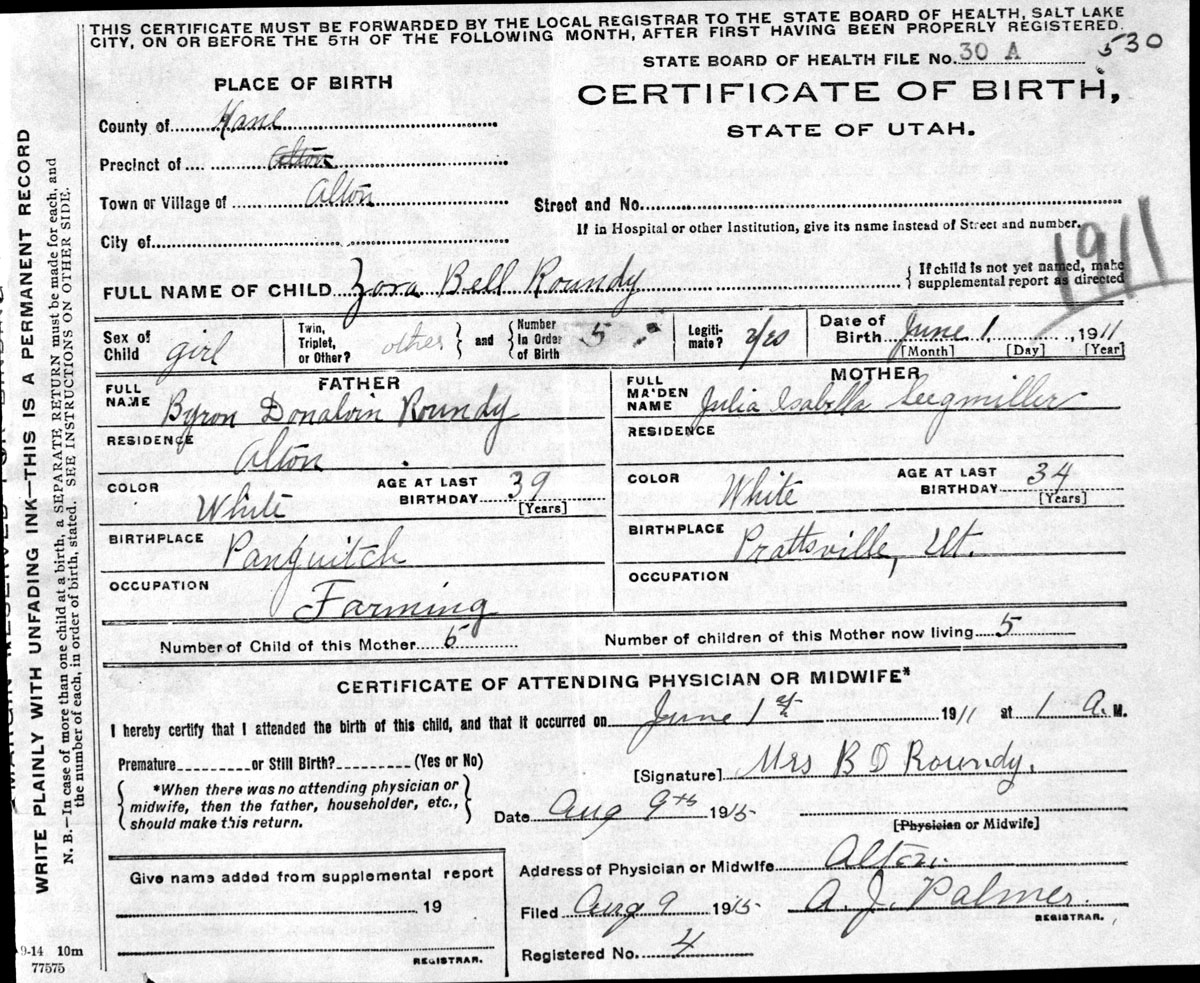 THIS CERTIFICATE MUST BE FORWARDED BY THE LOCAL REGISTRAR TO THE STATE BOARD OF HEALTH, SALT LAKE
CITY, ON OR BEFORE THE 5TH OF THE FOLLOWING MONTH, AFTER FIRST HAVING BEEN PROPERLY REGISTERED.
STATE BOARD OF HEALTH FILE No. 30 A
530
PLACE OF BIRTH
CERTIFICATE OF BIRTH,
STATE OF UTAH.
County of Kane
Precinct of Alton
Town or Village of Alton
Street and No.
If in Hospital or other Institution, give its name instead of Street and number.
City of
1911
FULL NAME OF CHILD Zora Bell Roundy
{ If child is not yet named, make
supplemental report as directed
Sex of Child girl
Twin, Triplet, or Other? other } and { Number in Order of Birth 5
Legiti-mate? yes
Date of Birth June 1, 1911
[Month] [Day] [Year]
FATHER
FULL NAME Byron Donalvin Roundy
RESIDENCE Alton
COLOR White AGE AT LAST BIRTHDAY 39 [Years]
BIRTHPLACE Panguitch
OCCUPATION Farming
MOTHER
FULL MAIDEN NAME Julia Isabella Seegmiller
RESIDENCE
COLOR White AGE AT LAST BIRTHDAY 34 [Years]
BIRTHPLACE Prattsville, Ut.
OCCUPATION
Number of Child of this Mother 5 Number of children of this Mother now living 5
CERTIFICATE OF ATTENDING PHYSICIAN OR MIDWIFE*
I hereby certify that I attended the birth of this child, and that it occurred on June 1st 1911 at 1 A. M.
Premature or Still Birth? (Yes or No)
[Signature] Mrs B D Roundy.
{ *When there was no attending physician or
midwife, then the father, householder, etc.,
should make this return. }
Date Aug 9th 1915
[Physician or Midwife]
Give name added from supplemental report
19
REGISTRAR.
Address of Physician or Midwife Alton.
Filed Aug 9 1915 A. J. Palmer.
REGISTRAR.
Registered No. 4
9-14 10m
77575
WRITE PLAINLY WITH UNFADING INK—THIS IS A PERMANENT RECORD
N. B.—In case of more than one child at a birth, a SEPARATE RETURN must be made for each, and
the number of each, in order of birth, stated. SEE INSTRUCTIONS ON OTHER SIDE.